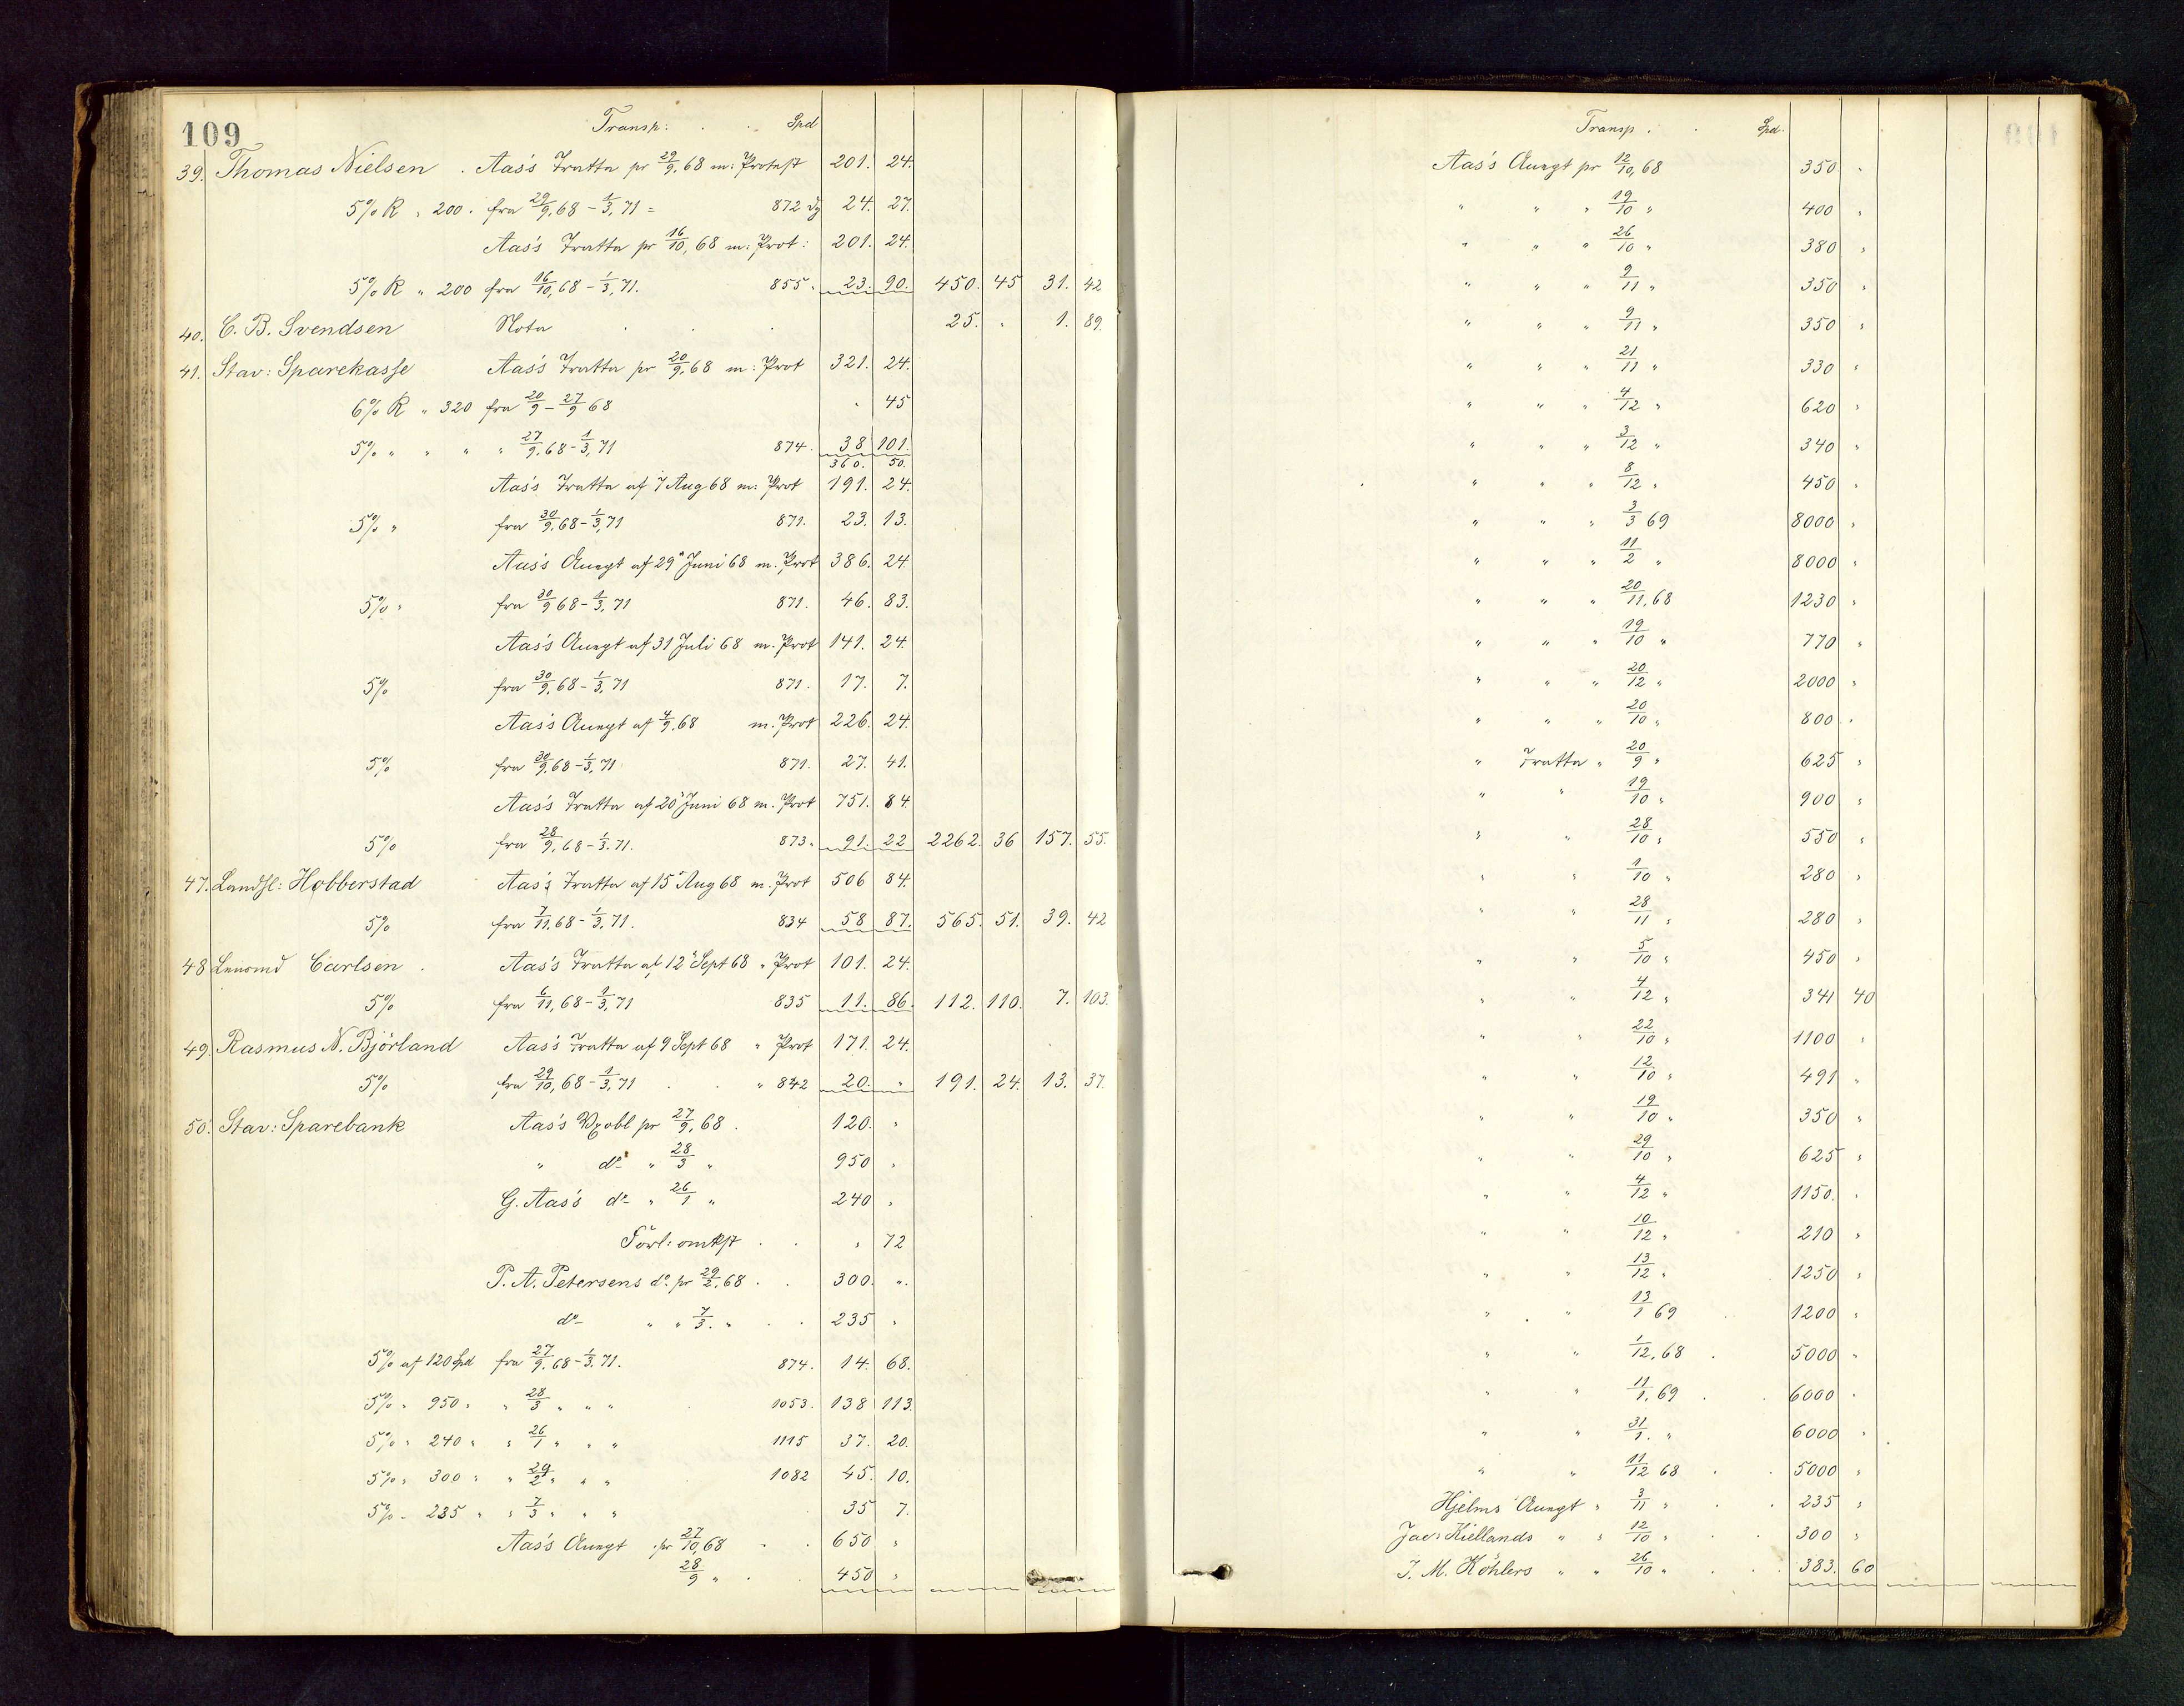 109
Transp: . . Spd
39. Thomas Nielsen . Aas's Tratta pr 29/9, 68 m: Protest 201. 24.
5% R " 200. fra 29/9, 68 - 1/3, 71 = 872 dg 24. 27.
Aas's Tratta pr 16/10, 68 m: Prot: 201. 24.
5% R " 200 fra 16/10, 68 - 1/3, 71. 855 " 23. 90. 450. 45 31. 42
40. C. B. Svendsen Nota . . 25. " 1. 89.
41. Stav: Sparekasse Aas's Tratta pr 20/9, 68 m: Prot 321. 24.
6% R " 320 fra 20/9 - 27/9 68 " 45
5% " " " " 27/9, 68 - 1/3, 71 874. 38 101.
360. 50.
Aas's Tratta af 7 Aug 68 m: Prot 191. 24.
5% " fra 30/9, 68 - 1/3, 71 871. 23. 13.
Aas's Accept af 29 Juni 68 m. Prot 386. 24.
5% " fra 30/9 68 - 1/3, 71 871. 46. 83.
Aas's Accept af 31 Juli 68 m. Prot 141. 24.
5% fra 30/9, 68 - 1/3, 71 871. 17. 7.
Aas's Accept af 4/9, 68 m. Prot 226. 24.
5% fra 30/9, 68 - 1/3, 71 871. 27. 41.
Aas's Tratta af 20 Juni 68 m. Prot 751. 84.
5% fra 28/9, 68 - 1/3. 71. 873. 91. 22 2262. 36 157. 55.
47. Landsl: Hobberstad Aas's Tratta af 15 Aug 68 m. Prot 506 84.
5% fra 7/11, 68 - 1/3, 71. 834 58 87. 565. 51. 39. 42
48 Carlsen . Aas's Tratta af 12 Sept 68 " Prot 101. 24.
5% fra 6/11, 68 - 1/3, 71 835 11. 86. 112. 110. 7. 103.
49. Rasmus N. Björland Aas's Tratta af 9 Sept 68 " Prot 171. 24.
5% fra 29/10, 68 - 1/3, 71 . . " 842 20. " 191. 24. 13. 37.
50. Stav: Sparebank Aas's Vxobl pr 27/9, 68 . 120. "
" do " 28/3 " 950 "
G. Aas's do " 26/1 " 240 "
Forl: omkst . . " 72
P. A. Petersens do. pr 29/2, 68 . . 300. "
do " " 7/3. " . . 235 "
5% af 120 Spd fra 27/9, 68 - 1/3, 71. 874. 14. 68.
5% " 950 " " 28/3 " " " 1053. 138 113.
5% " 240 " " 26/1 " " " 1115 37. 20.
5% " 300 " " 29/2 " " " 1082 45. 10.
5% - 235 " " 7/3 " " " 35 7.
Aas's Accept pr 27/10, 68 . . 650 "
28/9 " . . 450 "
Transp . . Spd.
Aas's Accept pr 12/10, 68 350 "
" " " 19/10 " 400 "
" " " 26/10 " 380 "
" " " 9/11 " 350 "
" " " 9/11 " 350 "
" " " 21/11 " 330 "
" " " 4/12 " 620 "
" " " 3/12 " 340 "
" " " 8/12 " 450 "
" " " 3/3 69 8000 "
" " " 11/2 " 8000 "
" " " 20/11, 68 1230 "
" " " 19/10 " 770 "
" " " 20/12 " 2000 "
" " " 20/10 " 800 "
" Tratta " 20/9 " 625 "
" " 19/10 " 900 "
" " 28/10 " 550 "
" " 1/10 " 280 "
" " 28/11 " 280 "
" " 5/10 " 450 "
" " 4/12 " 341 40
" " 22/10 " 1100 "
" " 12/10 " 491 "
" " 19/10 " 350 "
" " 29/10 " 625 "
" " 4/12 " 1150. "
" " 10/12 " 210 "
" " 13/12 " 1250 "
" " 13/1 69 . 1200 "
" " 1/12, 68 . 5000 "
" " 11/1, 69 . . 6000 "
" " 31/1. " 6000 "
" " 11/12 68 . . 5000 "
Hjelms Accept " 3/11 " . . 235 "
Jac: Kiellands " " 12/10 " . . 300 "
J. M. Köhlers " " 26/10 " . . 383. 60